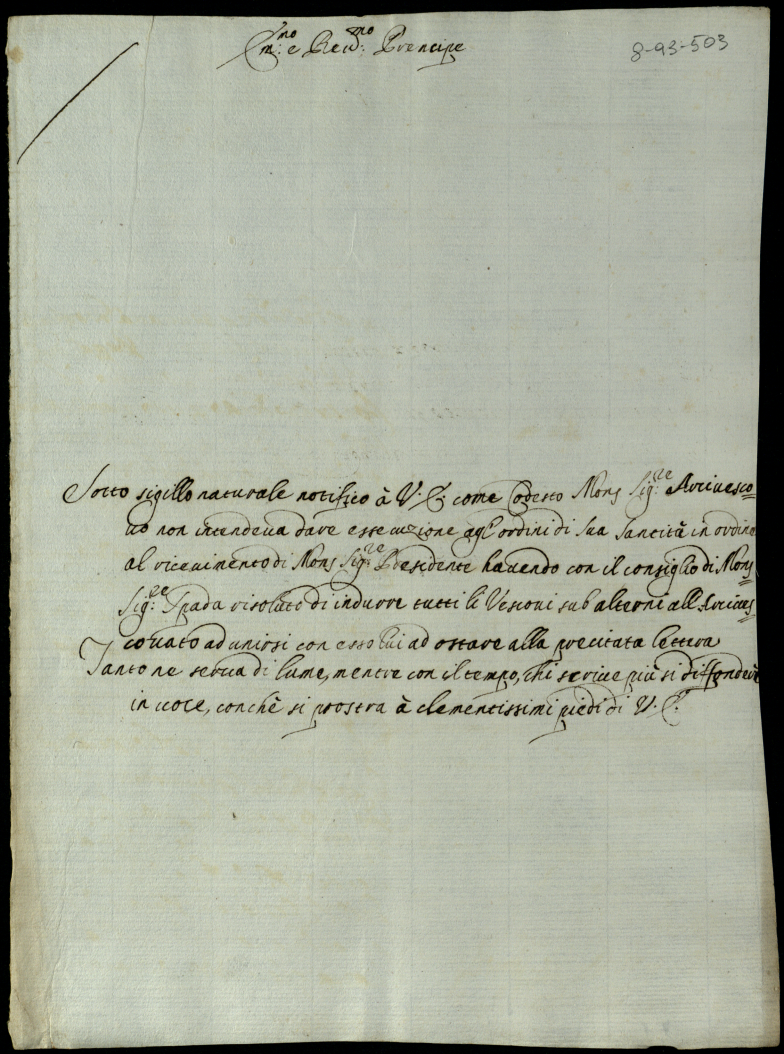 Em:mo e Reu:mo Prencipe
8-93-503
Sotto sigillo naturale notifico à V. E. come Codesto Mons Sig:re Arciuesco=
uo non intendeua dare essecuzione agl'ordini di Sua Santità in ordine
al riceuimento di Mons Sig:re Presidente hauendo con il consiglio di Mons
Sig:re Spada risoluto di indurre tutti li Vescoui sub alterni all'Arciues=
couato ad unirsi con esso lui ad ostare alla precitata lettera
Tanto ne serua di lume, mentre con il tempo, chi scriue più si diffonderà
in uoce, con chè si prostra à clementissimi piedi di V. E.